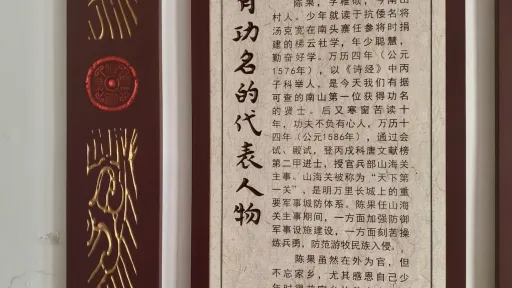 有功名的代表人物
陈果,字稚硕,今南山
村人。少年就读于抗倭名将
汤克宽在南头寨任参将时捐
建的梯云社学,年少聪慧,
勤奋好学。万历四年(公元
1576年),以《诗经》中丙
子科举人,是今天我们有据
可查的南山第一位获得功名
的贤士。后又寒窗苦读十
年,功夫不负有心人,万历十
四年(公元1586年),通过会
试、殿试,登丙戌科唐文献榜
第二甲进士,授官兵部山海关
主事。山海关被称为“天下第
一关”,是明万里长城上的重
要军事城防体系。陈果任山海
关主事期间,一方面加强防御
军事设施建设,一方面刻苦操
练兵勇,防范游牧民族入侵。
陈果虽然在外为官,但
不忘家乡,尤其感恩自己少